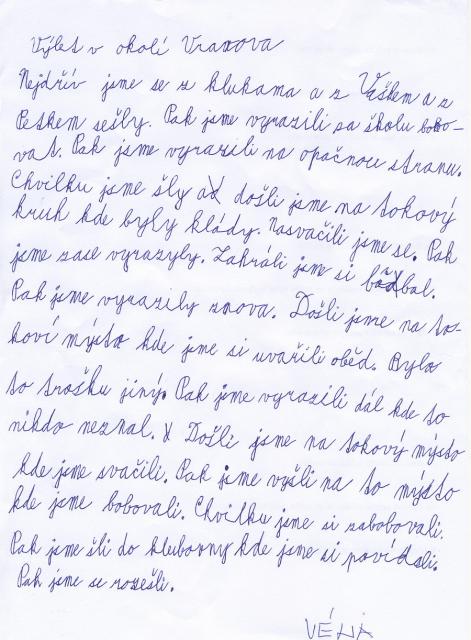 Výlet v okolí Vranova
Nejdřív jsme se z klukama a z Vaškem a z
Peťkem sešly. Pak jsme vyrazili za školu bobo-
vat. Pak jsme vyrazili na opačnou stranu.
Chvilku jsme šly a došli jsme na takový
kruh kde byly klády. Nasvačili jsme se. Pak
jsme zase vyrazyly. Zahráli jsme si bal.
Pak jsme vyrazily znova. Došli jsme na ta-
koví mýsto kde jsme si uvařili oběd. Bylo
to trošku jiný. Pak jsme vyrazili dál kde to
nikdo neznal. Došli jsme na takový mýsto
kde jsme svačili. Pak jsme vyšli na to mýsto
kde jsme bobovali. Chvilku jsme si zabobovali.
Pak jsme šli do klubovny kde jsme si povídali.
Pak jsme se rozešli.